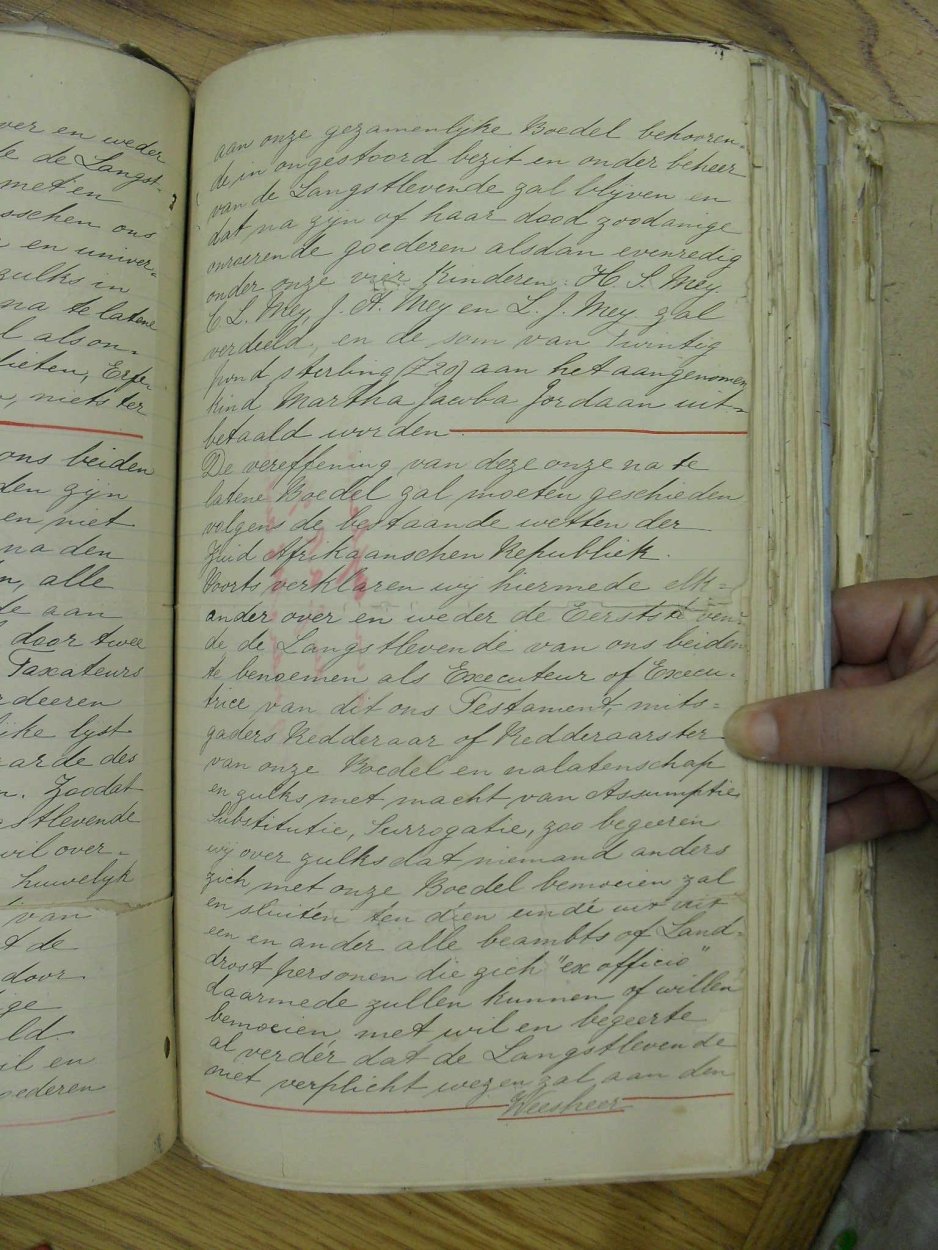 ver en weder
te de Langst-
met en
sschen ons
n en univer-
zulks in
na te latene
l als on-
lieten, Erfe-
n, niets ter
ons beiden
den zijn
en niet
na den
n, alle
de aan
door twee
Taxateurs
rdeeren
ijke lijst
aarde des
n. Zoodat
stlevende
wil over-
huwelyk
van
t de
door
ge
ld.
il en
oederen
aan onze gezamenlijke Boedel behooren-
de in ongestoord bezit en onder beheer
van de Langstlevende zal blijven en
dat na zijn of haar dood zoodanige
onroerende goederen alsdan evenredig
onder onze vier Kinderen: H. S. Mey.
C. L. Mey, J. A. Mey en L. J. Mey zal
verdeeld, en de som van Twintig
pond sterling (£20) aan het aangenomen
kind Martha Jacoba Jordaan uit-
betaald worden
De vereffening van deze onze na te
latene Boedel zal moeten geschieden
volgens de bestaande wetten der
Zuid Afrikaanschen Republiek.
Voorts verklaren wij hiermede elk-
ander over en weder de Eerststerven-
de de Langstlevende van ons beiden
te benoemen als Executeur of Execu-
trice van dit ons Testament, mits-
gaders Redderaar of Redderaarster
van onze Boedel en nalatenschap
en zulks met macht van Assumptie
Substitutie, Surrogatie, zoo begeeren
wij over zulks dat niemand anders
zich met onze Boedel bemoeien zal
en sluiten ten dien einde uit dit
een en ander alle beambts of Land-
drost personen die zich "ex officio"
daarmede zullen kunnen of willen
bemoeien met wil en begeerte
al verder dat de Langstlevende
niet verplicht wezen zal aan den
Weesheer